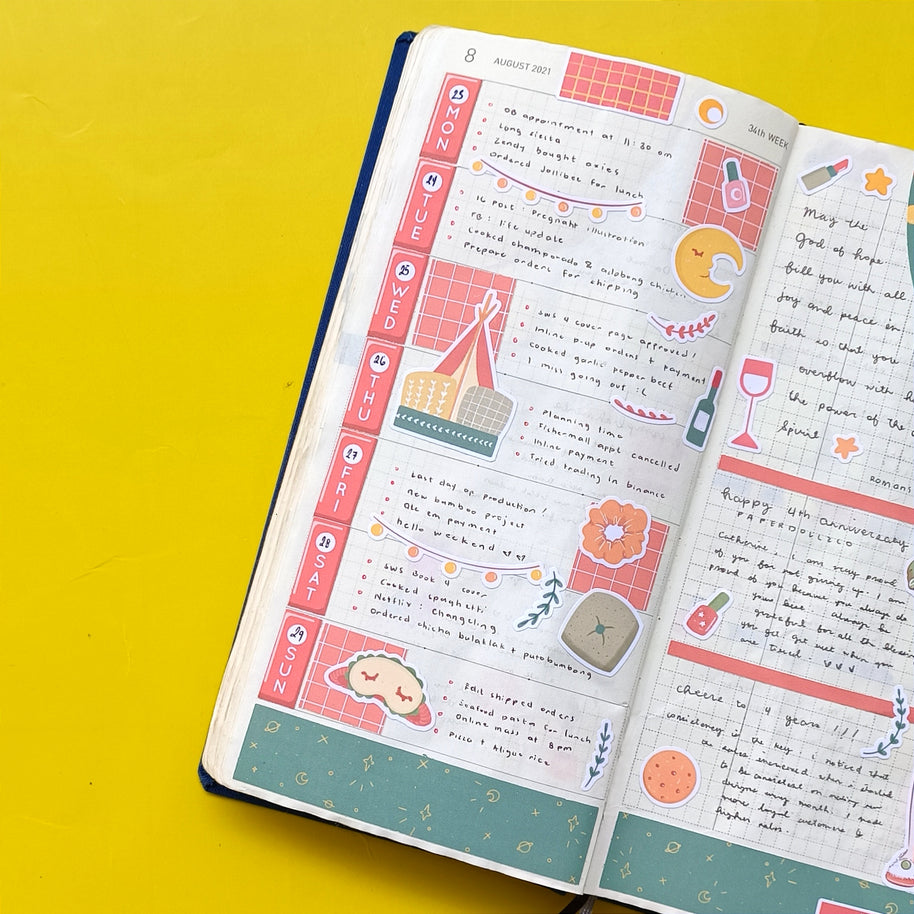 8 AUGUST 2021
34th WEEK
23
MON
OB appointment at 11:30 am
Long siesta
Zendy bought axies
Ordered Jollibee for lunch
24
TUE
IG Post: Pregnant illustration
FB: life update
Cooked champorado & adobong chicken
Prepare orders for shipping
25
WED
SWS 4 cover page approved!
Inline pick-up orders + payment
Cooked garlic pepper beef
I miss going out :(
26
THU
Planning time
Fishermall appt cancelled
Inline payment
Tried trading in binance
27
FRI
Last day of production!
New bamboo project
payment
hello weekend
28
SAT
SWS Book 4 cover
Cooked spaghetti
Netflix: Changeling
Ordered chicha bulaklak + puto bumbong
29
SUN
Edit shipped orders
Seafood pasta for lunch
Online mass at 8pm
Pizza + Aligue rice
May the
God of hope
fill you with all
joy and peace in
faith so that you
overflow with
the power of the
Spirit
Romans
happy 4th anniversary
PAPERDOLLZCO
Catherine, I am very proud
of you for not giving up. I am
proud of you because you always do
your best. Always be
grateful for all the blessings
you get. Get rest when you
are tired
cheers to 4 years!!!
consistency is the key. I noticed that
the sales increased when I started
to be consistent on making new
designs every month. I made
more loyal customers &
higher sales.